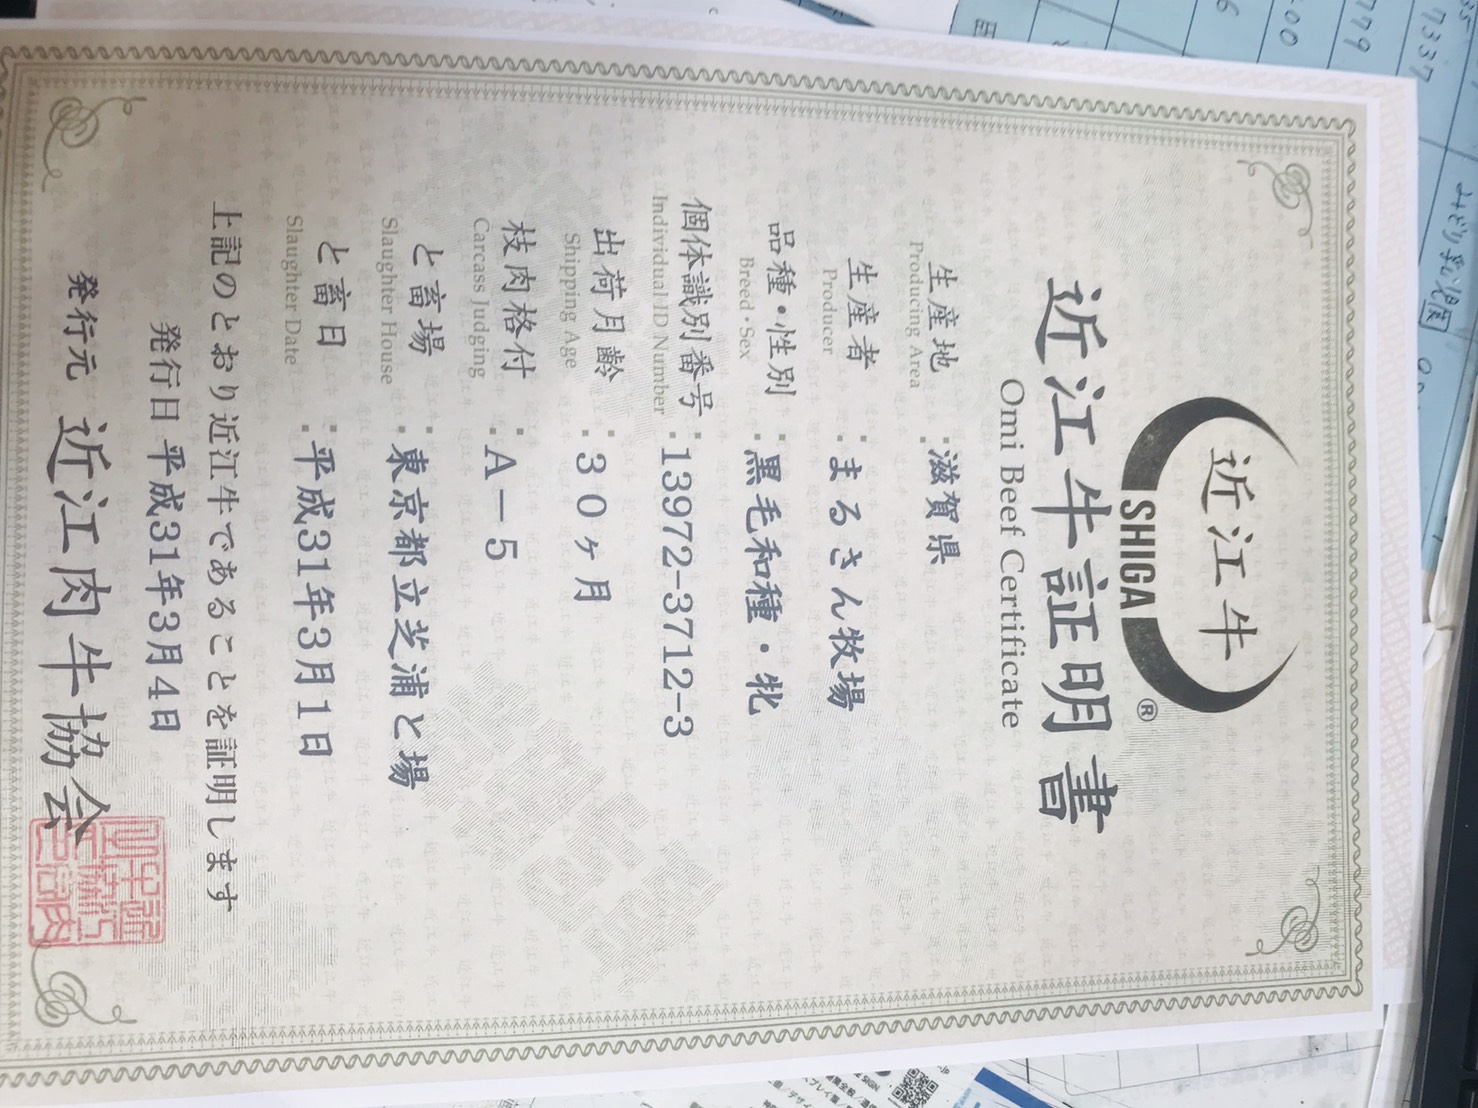 近江牛
SHIGA
®
近江牛証明書
Omi Beef Certificate
生産地 : 滋賀県
Producing Area
生産者 : まるさん牧場
Producer
品種・性別 : 黒毛和種・牝
Breed・Sex
個体識別番号 : 13972-3712-3
Individual ID Number
出荷月齢 : 30ヶ月
Shipping Age
枝肉格付 : A－5
Carcass Judging
と畜場 : 東京都立芝浦と場
Slaughter House
と畜日 : 平成31年3月1日
Slaughter Date
上記のとおり近江牛であることを証明します
発行日 平成31年3月4日
発行元 近江肉牛協会
7337
779